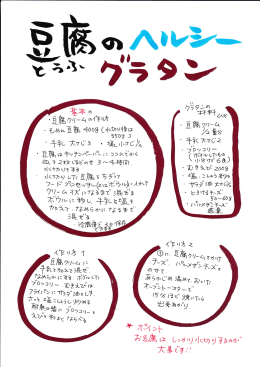 豆腐のヘルシー
とうふ
グラタン
基本の
豆腐クリームの作り方
・もめん豆腐 400g (水切り後は
350g)
・牛乳 大さじ3 ・塩 小さじ1/2
・豆腐はキッチンペーパーに
水切りする
水切りした豆腐をちぎって
フードプロセッサーに
クリーム状になるまで混ぜる
ボウルに移し、牛乳と塩を
加えて、なめらかになるまで
混ぜる
グラタンの
材料
・豆腐クリーム
1/2量
・牛乳 大さじ2
・ブロッコリー
・むきえび 200g
・塩、こしょう 少々
・サラダ油 大さじ1/2
・とけるチーズ
・パルメザンチーズ
適量
作り方 1
豆腐クリームに
牛乳を加えて混ぜ
なめらかにする
ブロッコリー むきえびは
フライパンに サラダ油
さっと 塩こしょう
耐熱の器に ブロッコリーと
えびを
作り方 2
①に 豆腐クリームをかけ
チーズ、パルメザンチーズを
のせて
あらかじめ温めておいた
オーブントースターで
15分ほど焼いたら
出来あがり
* ポイント
お豆腐は しっかり水切りするのが
大事です!!